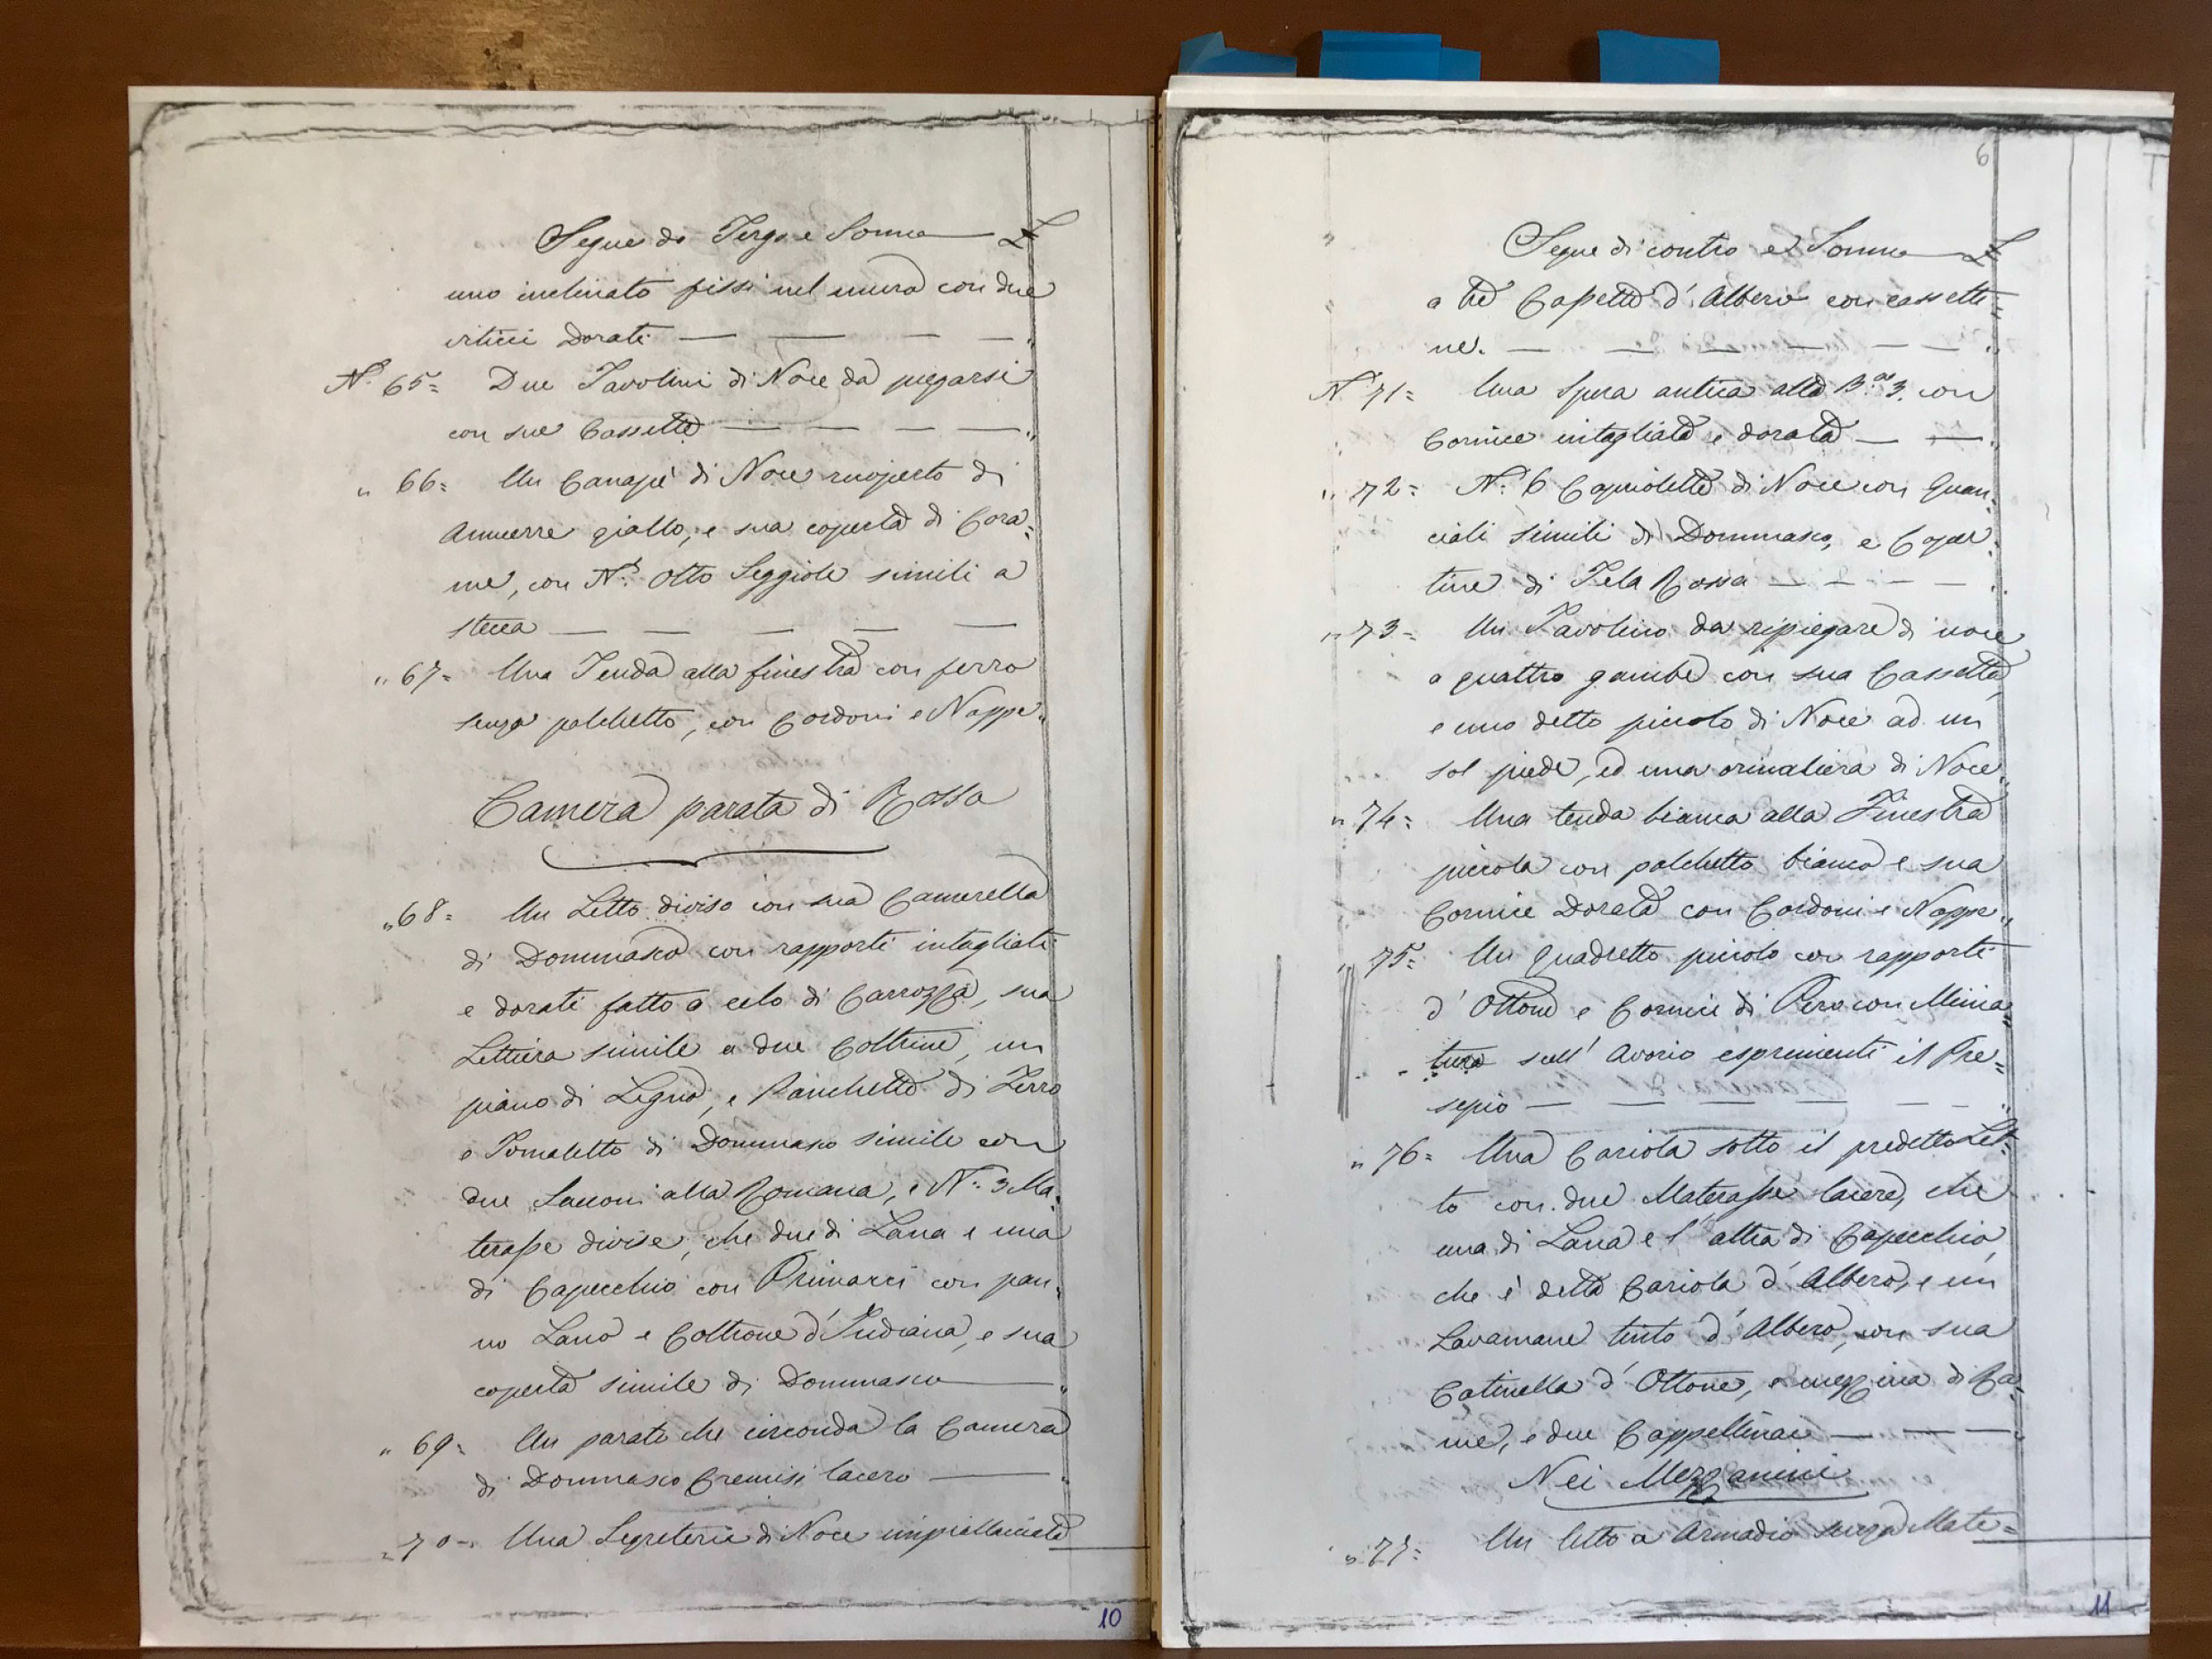 Segue da Tergo e Somma — £
uno inclinato fissi nel muro con due
viticci Dorati — — — — "
N.° 65= Due Tavolini di Noce da piegarsi
con sue Cassette — — — — "
" 66= Un Canapè di Noce ricoperto di
Amuerre giallo, e sua coperta di Cora=
me, con N.° Otto Seggiole simili a
stecca — — — — —
" 67= Una Tenda alla finestra con ferro
senza palchetto, con Cordoni e Nappe "
Camera parata di Rosso
" 68= Un Letto diviso con sua Camerella
di Dommasco con rapporti intagliati
e dorati fatto a celo di Carrozza, sua
Lettiera simile a due Coltrine, un
piano di Legno, e Panchette di Ferro
e Tornaletto di Dommasco simile con
due Sacconi alla Romana, e N.° 3 Ma=
terasse divise, che due di Lana e una
di Capecchio con Primacci con pan=
no Lano e Coltrone d'Indiana, e sua
coperta simile di Dommasco — "
" 69= Un parato che circonda la Camera
di Dommasco Cremisi lacero — "
" 70= Una Segreteria di Noce impiallacciata
10
6
Segue di contro e Somma — £
a tre Casette d'Albero con cassetti=
ne. — — — — — — "
N.° 71= Una Spera antica alta B.a 3. con
Cornice intagliata e dorata — — "
" 72= N.° 6 Capriolette di Noce con Guan=
ciali simili di Dommasco, e Coper=
tine di Tela Rossa — — — — "
" 73= Un Tavolino da ripiegare di noce
a quattro gambe con sua Cassetta,
e uno detto piccolo di Noce ad un
sol piede, ed una orinaliera di Noce "
" 74= Una tenda bianca alla Finestra
piccola con palchetto bianco e sua
Cornice Dorata con Cordoni e Nappe "
" 75= Un Quadretto piccolo con rapporti
d'Ottone e Cornice di Pero con Minia=
tura sull'Avorio esprimenti il Pre=
sepio — — — — — — "
" 76= Una Cariola sotto il predetto Let=
to con due Materasse lacere, che
una di Lana e l'altra di Capecchio,
che è detta Cariola d'Albero, e un
Lavamane tinto d'Albero, con sua
Catinella d'Ottone, e mezzina di Ra=
me, e due Cappellinai — — — "
Nei Mezzanini
" 77= Un letto a Armadio senza Mate=
11